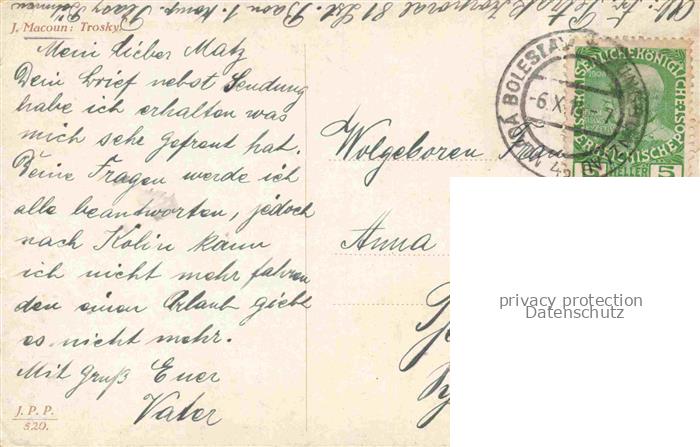 J. Macoun: Trosky.
Mein lieber Matz
Dein brief nebst Sendung
habe ich erhalten was
mich sehr gefreut hat.
Deine Fragen werde ich
alle beantworten, jedoch
nach Kolin kann
ich nicht mehr fahren
den einen Urlaub giebt
es nicht mehr.
Mit Gruß Euer
Vater
J. P. P.
520.
Wolgeboren Frau
Anna
BOLESLAV
-6.X.
5
HELLER
privacy protection
Datenschutz